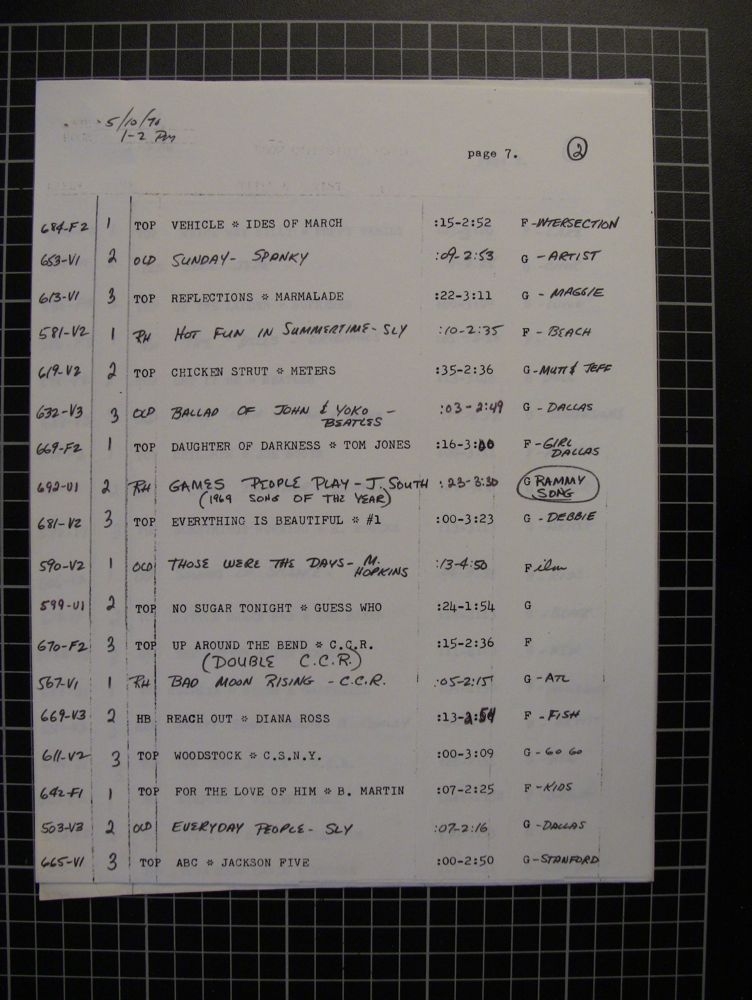 5/10/70
1-2 PM
page 7. 2
684-F2 1 TOP VEHICLE * IDES OF MARCH :15-2:52 F-INTERSECTION
653-V1 2 OLD SUNDAY- SPANKY :09-2:53 G - ARTIST
613-V1 3 TOP REFLECTIONS * MARMALADE :22-3:11 G - MAGGIE
581-V2 1 RH HOT FUN IN SUMMERTIME- SLY :10-2:35 F - BEACH
619-V2 2 TOP CHICKEN STRUT * METERS :35-2:36 G-MUTT & JEFF
632-V3 3 OLD BALLAD OF JOHN & YOKO - :03-2:49 G - DALLAS
BEATLES
669-F2 1 TOP DAUGHTER OF DARKNESS * TOM JONES :16-3:00 F-GIRL
DALLAS
692-V1 2 RH GAMES PEOPLE PLAY - J. SOUTH :23-3:30 GRAMMY
(1969 SONG OF THE YEAR) SONG
681-V2 3 TOP EVERYTHING IS BEAUTIFUL * #1 :00-3:23 G - DEBBIE
590-V2 1 OLD THOSE WERE THE DAYS- M. :13-4:50 Film
HOPKINS
599-V1 2 TOP NO SUGAR TONIGHT * GUESS WHO :24-1:54 G
670-F2 3 TOP UP AROUND THE BEND * C.C.R. :15-2:36 F
(DOUBLE C.C.R.)
567-V1 1 RH BAD MOON RISING - C.C.R. :05-2:15 G - ATL
669-V3 2 HB REACH OUT * DIANA ROSS :13-2:54 F - FISH
611-V2 3 TOP WOODSTOCK * C.S.N.Y. :00-3:09 G - GO GO
642-F1 1 TOP FOR THE LOVE OF HIM * B. MARTIN :07-2:25 F-KIDS
503-V3 2 OLD EVERYDAY PEOPLE- SLY :07-2:16 G -DALLAS
665-V1 3 TOP ABC * JACKSON FIVE :00-2:50 G-STANFORD